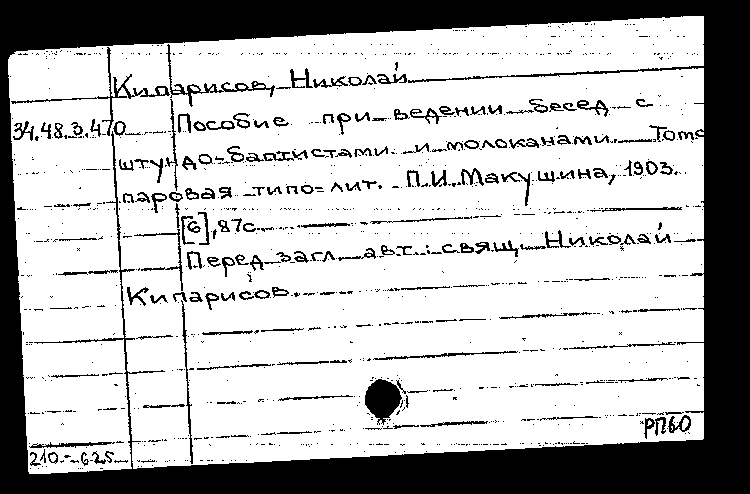 Кипарисов, Николай
34.48.3.470 Пособие при ведении бесед с
штундо-баптистами и молоканами. Томс
паровая типо-лит. П.И.Макушина, 1903.
[6],87с
Перед загл. авт.: свящ. Николай
Кипарисов.
РПБО
210-625